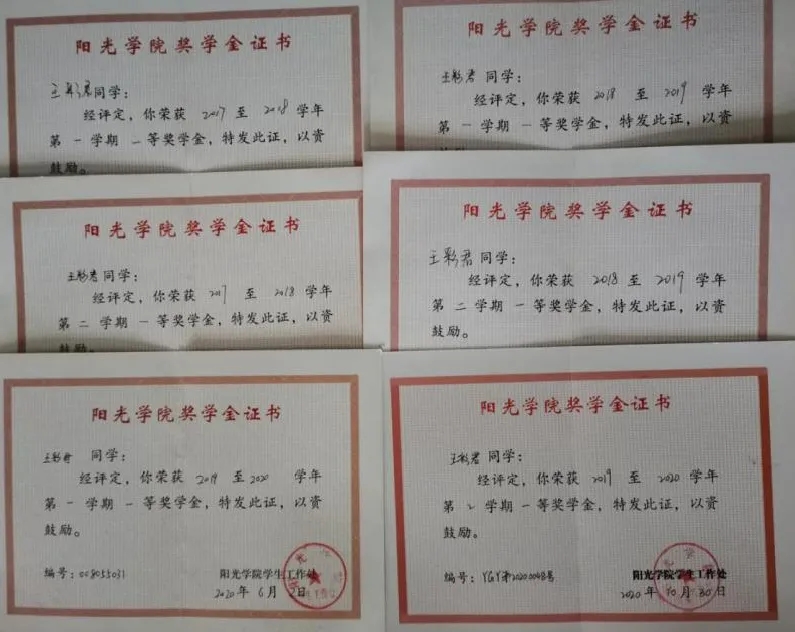 阳光学院奖学金证书
王彩君同学：
经评定，你荣获 2017 至 2018 学年
第一学期 二等奖学金，特发此证，以资
鼓励。
阳光学院奖学金证书
王彩君 同学：
经评定，你荣获 2018 至 2019 学年
第一学期 一等奖学金，特发此证，以资
阳光学院奖学金证书
王彩君同学：
经评定，你荣获 2017 至 2018 学年
第二学期 一等奖学金，特发此证，以资
鼓励。
阳光学院奖学金证书
王彩君同学：
经评定，你荣获 2018 至 2019 学年
第二学期 一等奖学金，特发此证，以资
鼓励。
阳光学院奖学金证书
王彩君 同学：
经评定，你荣获 2019 至 2020 学年
第一学期 一等奖学金，特发此证，以资
鼓励。
编号：008055031
阳光学院学生工作处
2020 年 6 月 2 日
阳光学院奖学金证书
王彩君 同学：
经评定，你荣获 2019 至 2020 学年
第2学期 一等奖学金，特发此证，以资
鼓励。
编号：YGY第20200048号
阳光学院学生工作处
2020 年 10 月 30 日